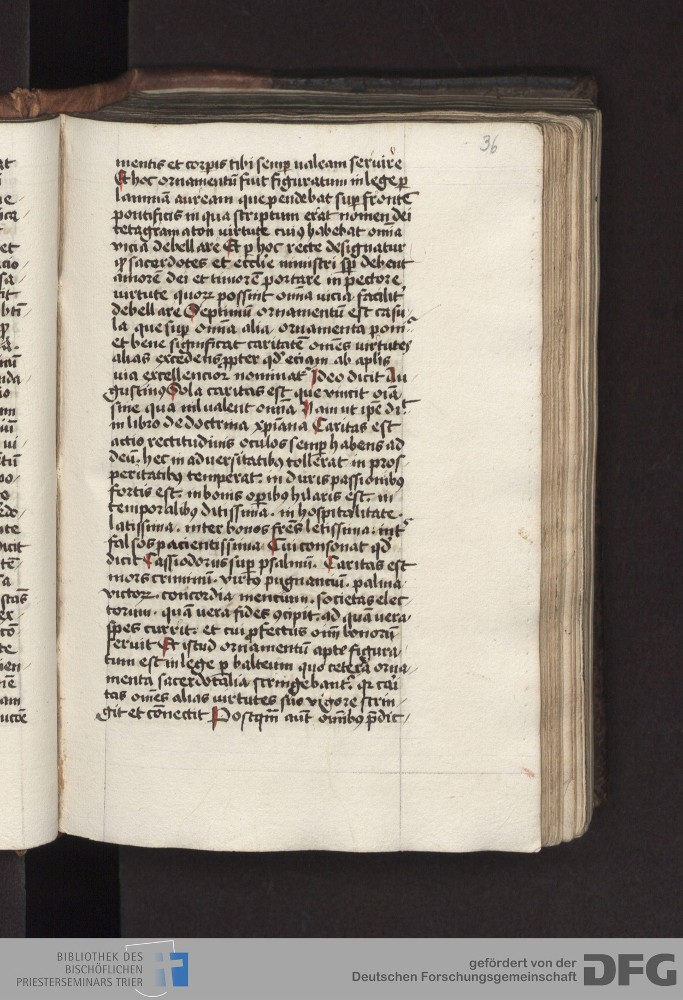 36
mentis et corpis tibi semp valeam servire
Et hoc ornamentū fuit figuratum in lege p
laminā auream que pendebat sup frontē
pontificis in qua scriptum erat nomen dei
tetagramaton virtute cuiꝰ habebat omīa
vicia debellare Et p hoc recte designatur
ꝙ sacerdotes et ecclie ministri sp debent
amorē dei et timorē portare in pectore
virtute quoꝝ possint omīa vicia facilit
debellare Septimū ornamentū est casu
la que sup omīa alia ornamenta poni
et bene significat caritatē om̄es virtutes
alias excedens ppter qd eciam ab aplis
via excellencior nominat Ideo dicit Au
gustinꝰ Sola caritas est que vincit oīa
sine qua nil valent omīa Nam ut ipe di
in libro de doctrina xpiana Caritas est
actio rectitudinis oculos semp habens ad
deū. hec in adversitatibꝰ tollerat in pros
peritatibꝰ temperat. in duris passionibꝰ
fortis est. in bonis opibꝰ hilaris est. in
temporalibꝰ ditissima. in hospitalitate.
latissima. inter bonos frēs letissima. int
falsos pacientissima. Cui consonat qd
dicit Cassiodorus sup psalmū. Caritas est
mors criminū. virtꝰ pugnanciū. palma
victoꝝ. concordia mentium. societas elec
torum. quā vera fides ꝯcipit. ad quā vera
spes currit. et cui pfectus oīm bonorū
servit Et istud ornamentū apte figura
tum est in lege p balteum quo cetera orna
menta sacerdotalia stringebant. qr cari
tas om̄es alias virtutes suo vigore strin
git et cōnectit Postqm aut oīmbꝰ pdic
BIBLIOTHEK DES
BISCHÖFLICHEN
PRIESTERSEMINARS TRIER
gefördert von der
Deutschen Forschungsgemeinschaft
DFG